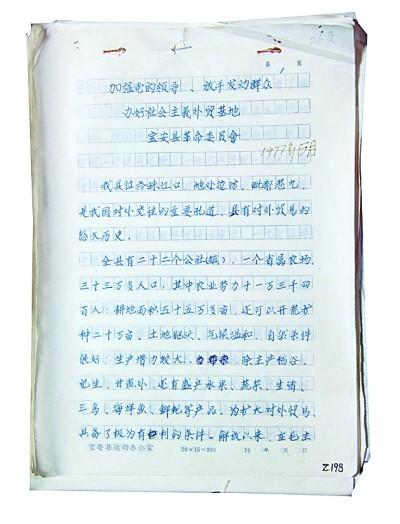 第 1 页
加强党的领导、放手发动群众
办好社会主义外贸基地
宝安县革命委员会
1977年 月
我县位于珠江口,地处边防,毗邻港九,
是我国对外交往的主要孔道,具有对外贸易的
悠久历史。
全县有二十二个公社(镇),一个省属农场,
三十三万多人口,其中农业劳力十一万三千四
百人;耕地面积五十五万多亩,还可以开荒扩
种二十万多亩,土地肥沃、气候温和、自然条件
很好,生产潜力较大,除主产稻谷、
花生、甘蔗外,还有盛产水果、蔬菜、生猪、
三鸟、海洋鱼、鲜蚝等产品,为扩大对外贸易,
具备了极为有利的条件。解放以来,在毛主
宝安县运动办公室 20×15=300 19 年 月 日
Z.198